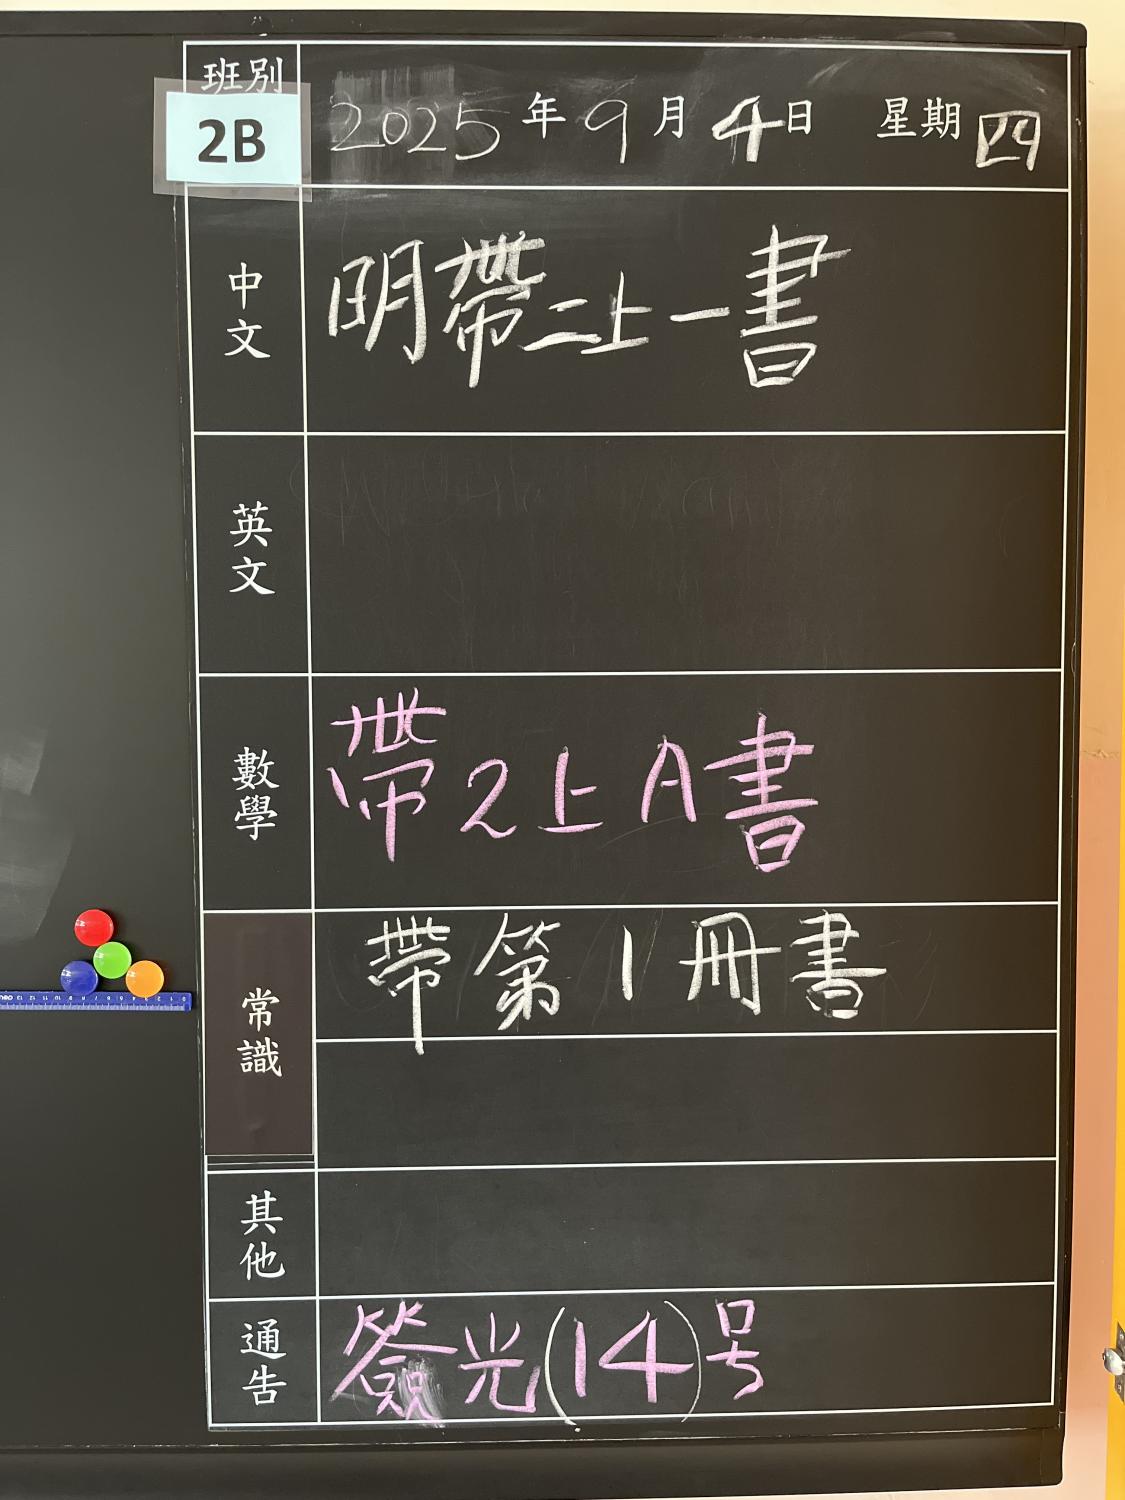 班別
2B
2025年9月4日 星期四
中文
明帶二上一書
英文
數學
帶2上A書
常識
帶第1冊書
其他
通告
簽光(14)号